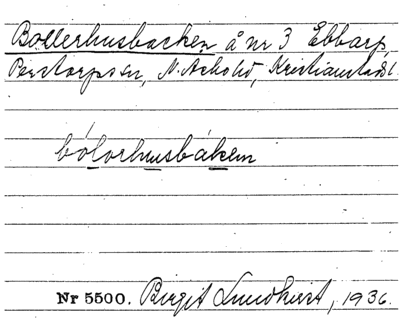 Bollerhusbacken å nr 3 Ebbarp,
Perstorps sn, N. Åsbo hd, Kristianstads l.
bólorhusbáken
Nr 5500. Birgit Lundkvist, 1936.